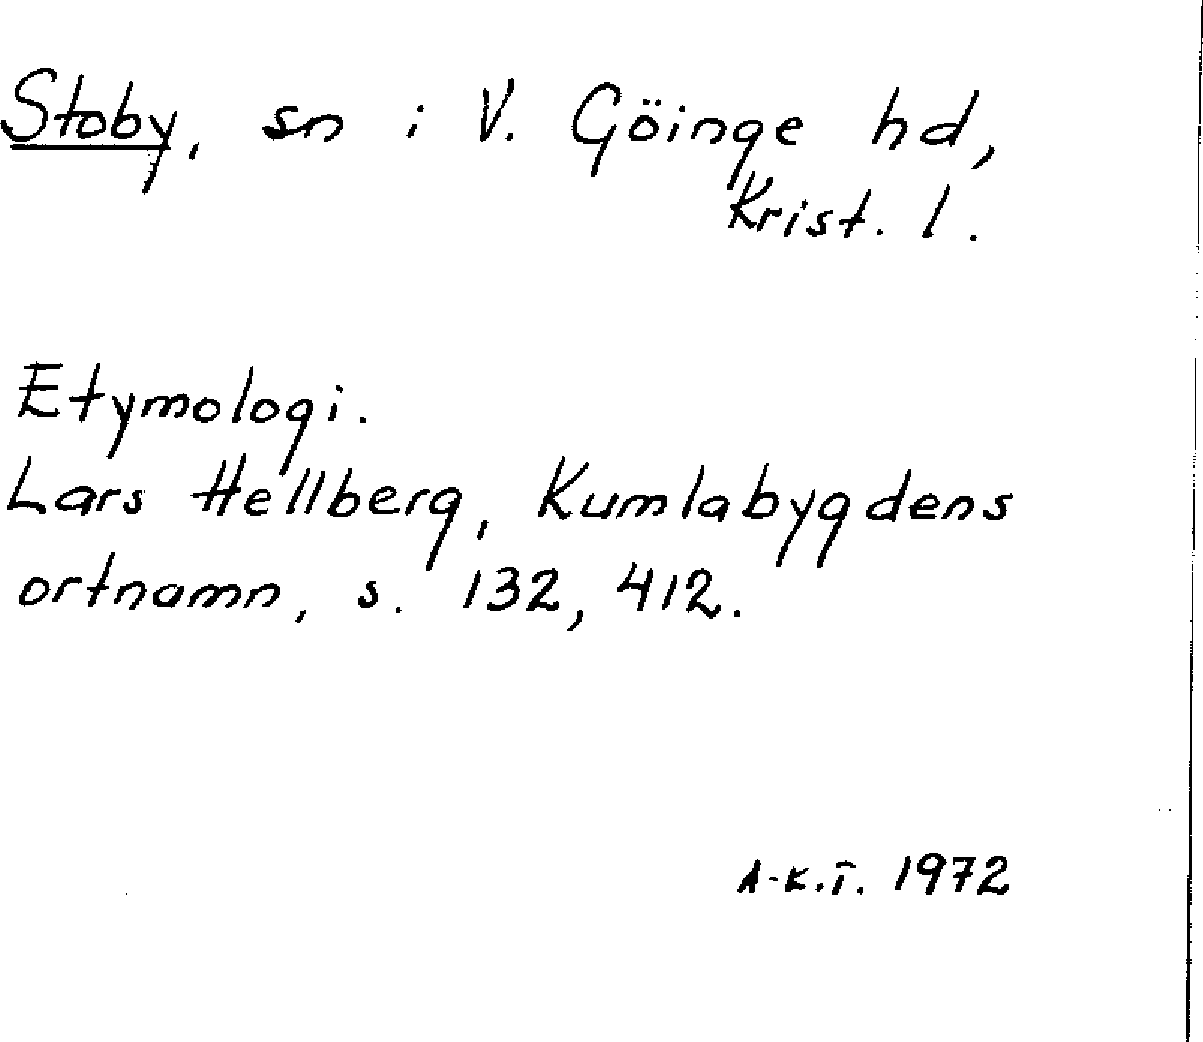 Stoby, sn i V. Göinge hd,
Krist. l.
Etymologi.
Lars Hellberg, Kumlabygdens
ortnamn, s. 132, 412.
A-K.T. 1972